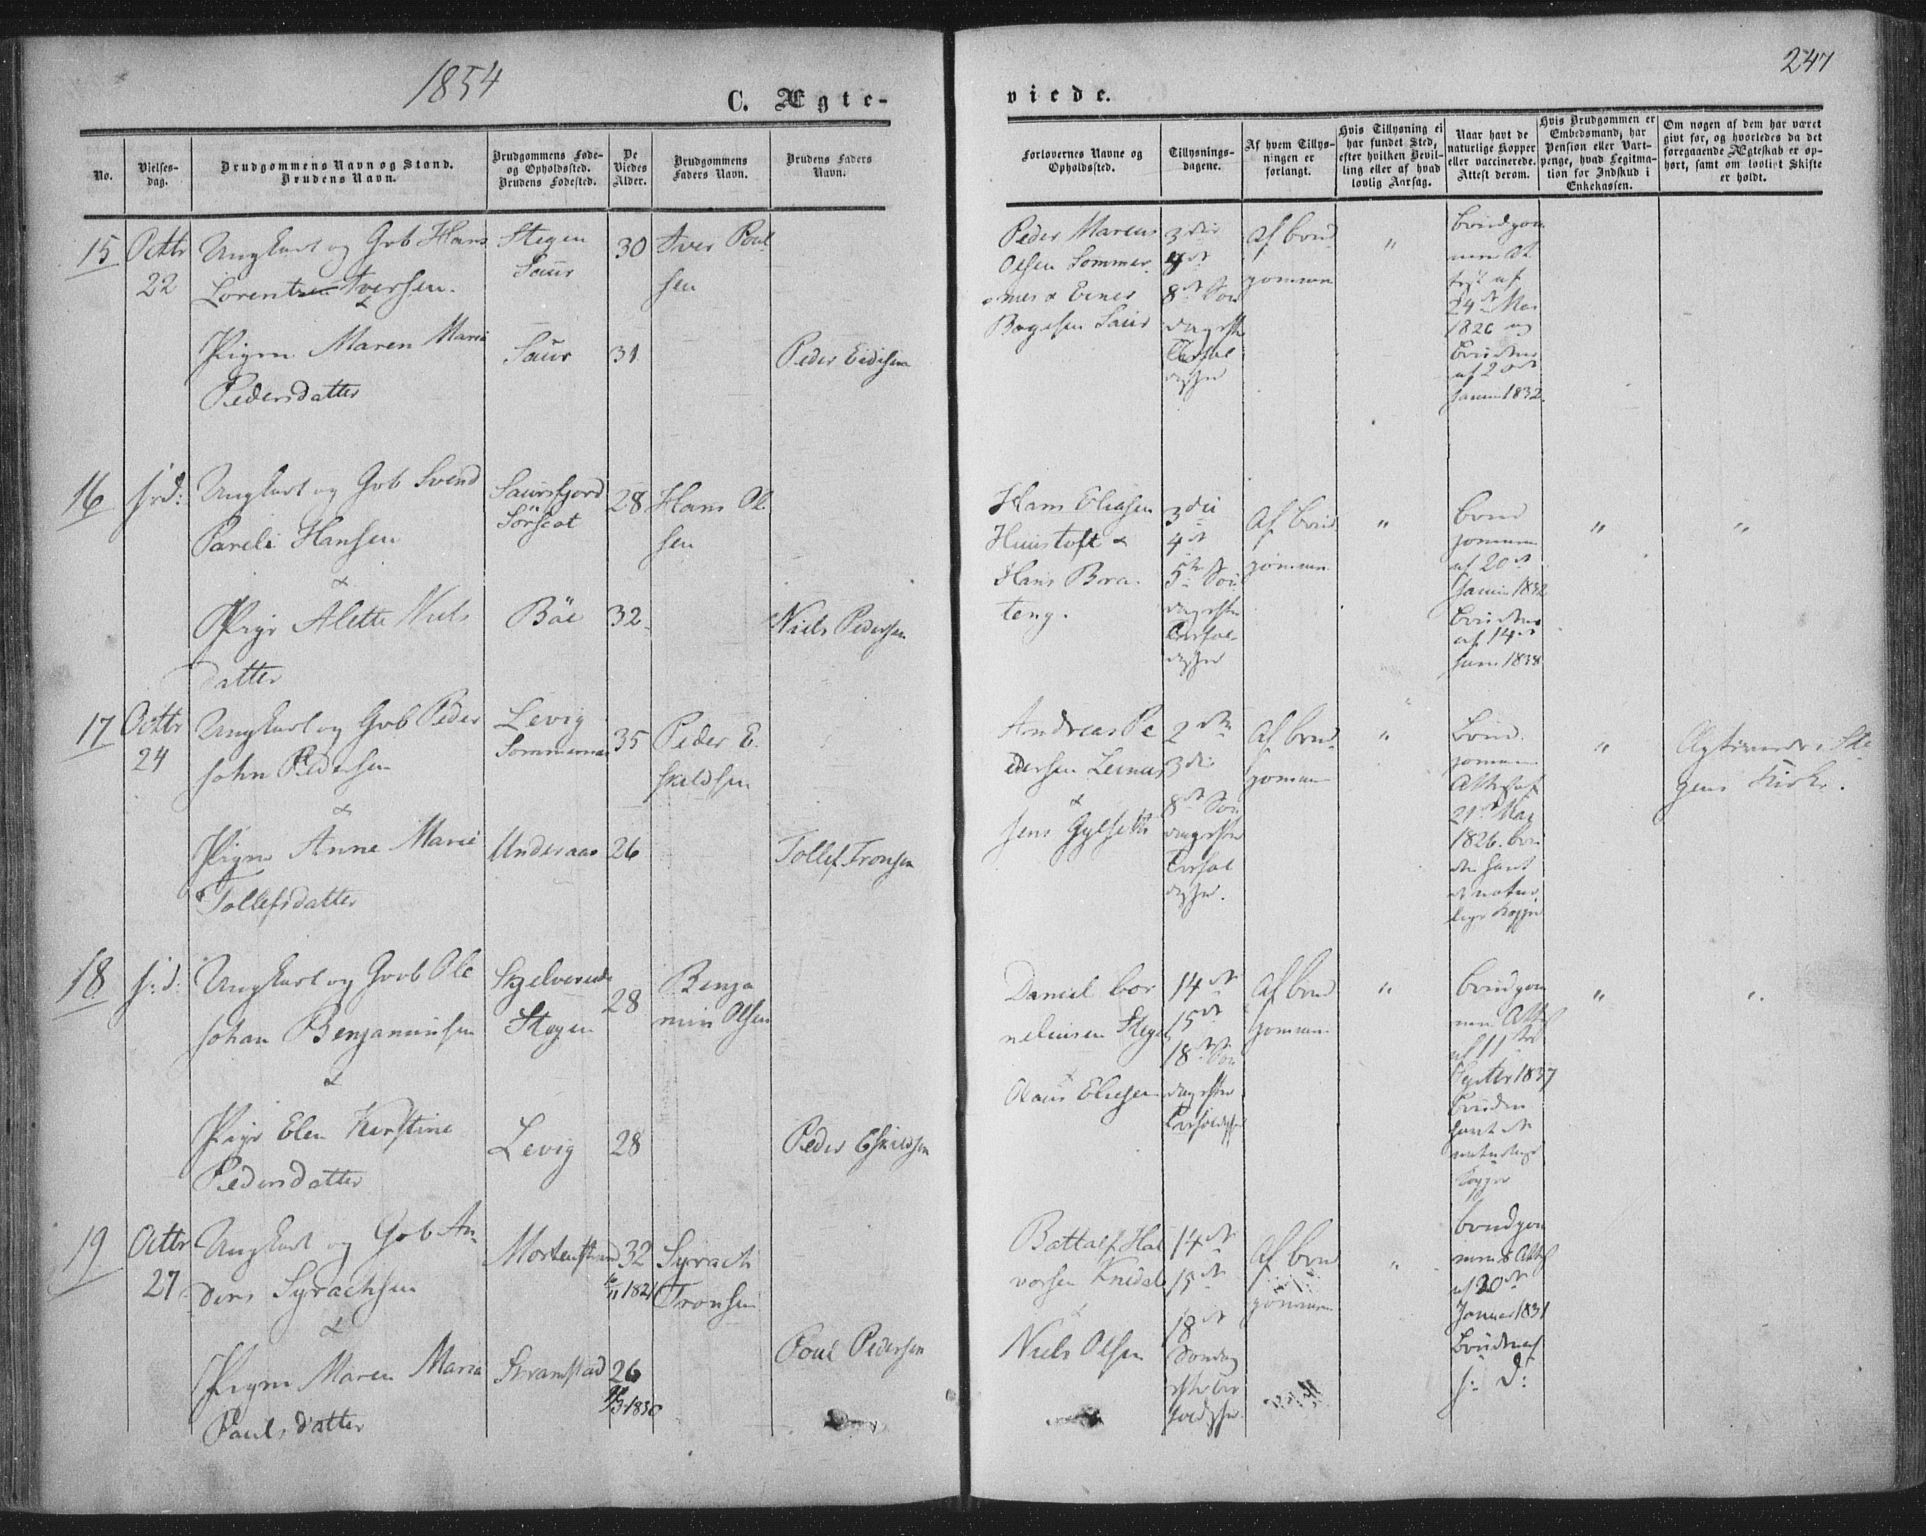 1854
C. Ægte-
No.
Vielses-
dag.
Brudgommens Navn og Stand.
Brudens Navn.
Brudgommens Føde-
og Opholdssted.
Brudens Fødested.
De
Viedes
Alder.
Brudgommens
Faders Navn.
Brudens Faders
Navn.
15
Octbr
22
Ungkarl og Grb Hans
Lorentzen Iversen
Stegen
Saur
30
Iver Poul
sen
Pigen Maren Maria
Pedersdatter
Saur
31
Peder Eidisen
16
s: d:
Ungkarl og Grb Svend
Pareli Hansen
&
Saursfjord
Sörscot
28
Hans Ol
sen
Pige Alette Niels
datter
Böe
32
Niels Pedersen
17
Octbr
24
Ungkarl og Grb Peder
John Pedersen
&
Levig
35
Peder E.
skildsen
Pigen Anne Marie
Tollefsdatter
Underaas
26
Tollef Tronsen
18
s: d:
Ungkarl og Grb Ole
Johan Benjaminsen
&
Stegen
28
Benja
min Olsen
Pige Elen Kirstine
Pedersdatter
Levig
28
Peder Eskildsen
19
Octbr
27
Ungkarl og Grb An
ders Syrachsen
&
Mortenstrand
32
1821
Syrach
Tronsen
Pigen Maren Maria
Paulsdatter
Stranstad
26
1830
Poul Pedersen
247
viede.
Forlovernes Navne og
Opholdssted.
Tillysnings-
dagene.
Af hvem Tillys-
ningen er
forlangt.
Hvis Tillysning ei
har fundet Sted,
efter hvilken Bevil-
ling eller af hvad
lovlig Aarsag.
Naar havt de
naturlige Kopper
eller vaccinerede.
Attest derom.
Hvis Brudgommen er
Embedsmand, har
Pension eller Vart-
penge, hvad Legitima-
tion for Indskud i
Enkekassen.
Om nogen af dem har været
givt for, og hvorledes da det
foregaaende Ægteskab er op-
hørt, samt om lovligt Skifte
er holdt.
Peder Marcus
Olsen Sommer
Bogesen Saur
3die
4de
8de Søn
dag efter
Af Brud
gommen
"
Brudgom
men At
test af
24de Mai
1826 og
Bruden
af 20de
Juni 1832.
Hans Eliasen
Huustoft &
Hans Bra
teng.
3die
4de
5te Søn
dag efter
Af Brud
gommen
"
Brud
gommen
af 20de
Juni 1832
Bruden
af 14de
Juni 1838
"
"
Andreas Pe
dersen Leines
&
Jens Gylseth
2den
3die
8de Søn
dag efter
Af Brud
gommen
"
Brud
gommen
Attest af
21de Mai
1826. Bru
den havt
de natur
lige Kopper
"
Ægteviede i Ste
gens Kirke.
Daniel Cor
neliusen Stegen
&
Olaus Eliesen
14de
15de
18de Søn
dag efter
Af Brud
gommen
"
Brudgom
men Attest
af 11te
Septbr 1837
Bruden
havt de
naturlige
Kopper
"
"
Battolf Hal
vorsen Knidal
&
Niels Olsen
14de
15de
18de
Søndag
efter
Af Brud
gommen
"
Brudgom
mens Attest
af 20de
Januar 1831
Brudens af
s: d: